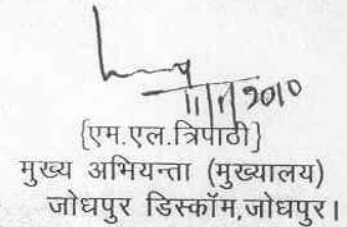 {एम.एल.त्रिपाठी}
मुख्य अभियन्ता (मुख्यालय)
जोधपुर डिस्कॉम,जोधपुर।